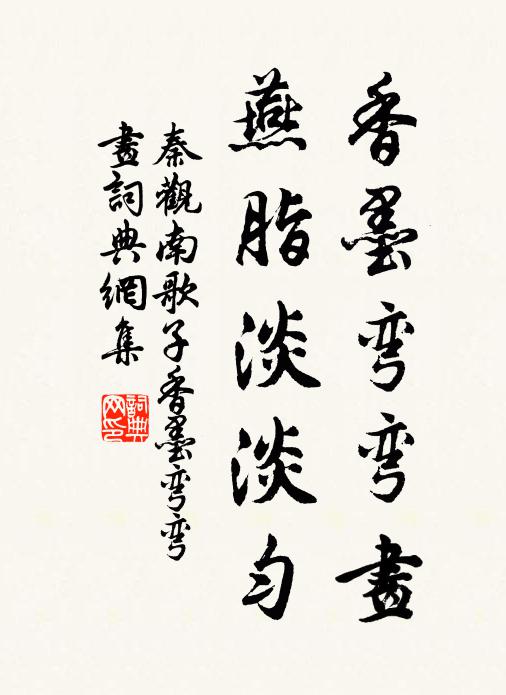 香墨弯弯畫
燕脂淡淡匀
秦觀南歌子香墨弯弯
畫詞典網集
詞典网印